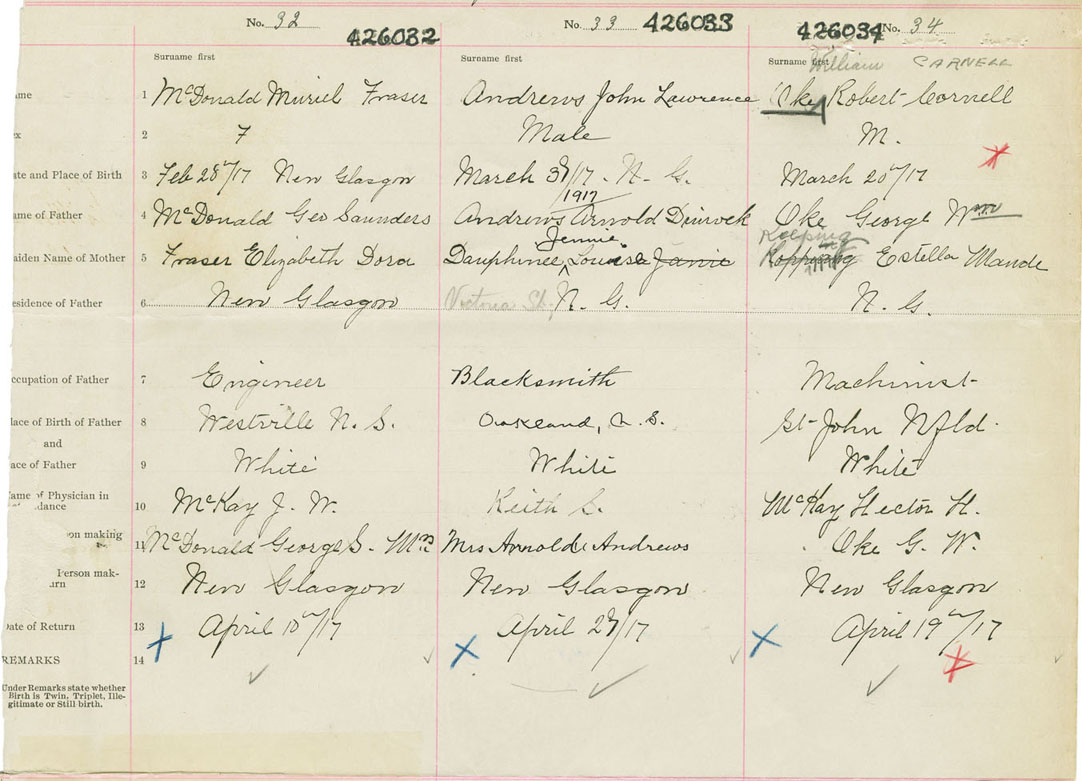 No. 32 No. 33 No. 34
426032 426033 426034
Surname first Surname first Surname first William CARNELL
me 1 McDonald Muriel Fraser Andrews John Lawrence Oke Robert Cornell
ex 2 F Male M.
ate and Place of Birth 3 Feb 28th/17 New Glasgow March 3rd/17. N. G. March 20th/17
1917
ame of Father 4 McDonald Geo Saunders Andrews Arnold Oke George Wm
Jennie Keeping
aiden Name of Mother 5 Fraser Elizabeth Dora Dauphinee, Louisa Janie Estella Maude
esidence of Father 6 New Glasgow Victoria St, N. G. N. G.
ccupation of Father 7 Engineer Blacksmith Machinist
lace of Birth of Father 8 Westville N. S. Oakland, N. S. St John Nfld.
and
ace of Father 9 White White White
ame of Physician in
dance 10 McKay J. W. Keith S. McKay Hector H.
on making
11 McDonald George S. Mrs Mrs Arnold Andrews Oke G. W.
Person mak-
urn 12 New Glasgow New Glasgow New Glasgow
Date of Return 13 April 10th/17 April 2nd/17 April 19th/17
REMARKS 14
Under Remarks state whether
Birth is Twin, Triplet, Ille-
gitimate or Still birth.